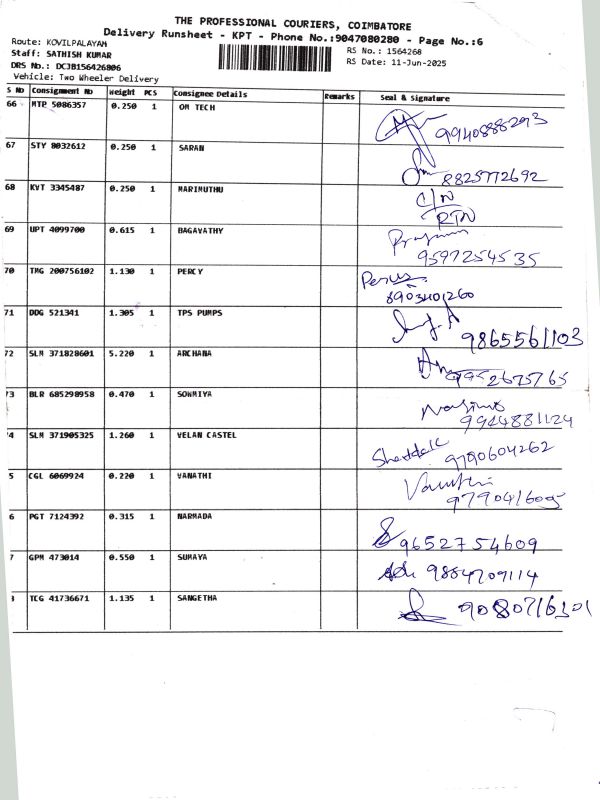 THE PROFESSIONAL COURIERS, COIMBATORE
Delivery Runsheet - KPT - Phone No.:9047080280 - Page No.:6
Route: KOVILPALAYAM
Staff: SATHISH KUMAR
RS No.: 1564268
DRS No.: DCJB156426806
RS Date: 11-Jun-2025
Vehicle: Two Wheeler Delivery
S No Consignment No Weight PCS Consignee Details Remarks Seal & Signature
66 MTP 5086357 0.250 1 OM TECH 9940888293
67 STY 8032612 0.250 1 SARAN 8825772692
68 KVT 3345487 0.250 1 MARIMUTHU C/N
RTN
69 UPT 4099700 0.615 1 BAGAVATHY
9597254535
70 TMG 200756102 1.130 1 PERCY
8903401260
71 DDG 521341 1.305 1 TPS PUMPS 9865561103
72 SLM 371828601 5.220 1 ARCHANA 9952675765
73 BLR 685298958 0.470 1 SOWMIYA
9944881124
74 SLM 371905325 1.260 1 VELAN CASTEL 9790604262
5 CGL 6069924 0.220 1 VANATHI
6 PGT 7124392 0.315 1 NARMADA 9652754609
7 GPM 473014 0.550 1 SUMAYA 9884709114
TCG 41736671 1.135 1 SANGETHA 9080716301